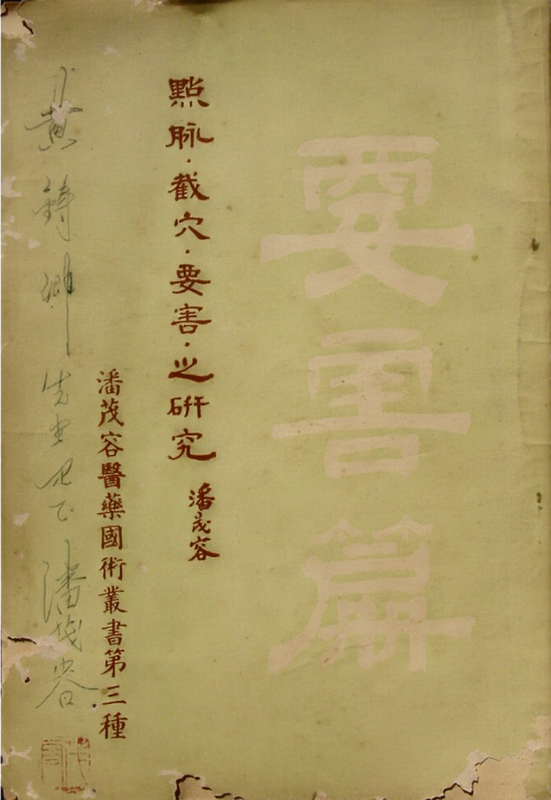 要害篇
點脉·截穴·要害·之研究
潘茂容
潘茂容醫藥國術叢書第三種
黃鑄卿先生 正 潘茂容